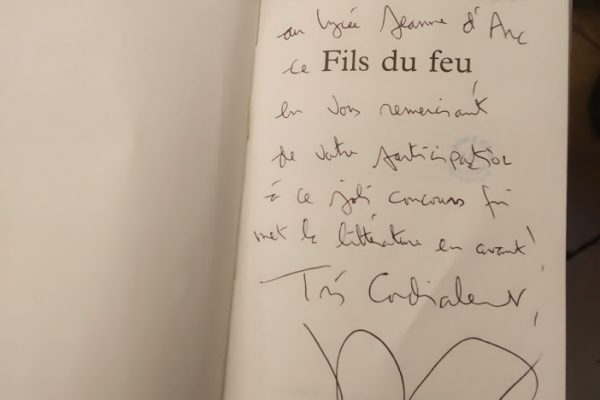 au lycée Jeanne d'Arc
ce Fils du feu
en vous remerciant
de votre participation
à ce joli concours qui
met la littérature en avant!
Très Cordialement,